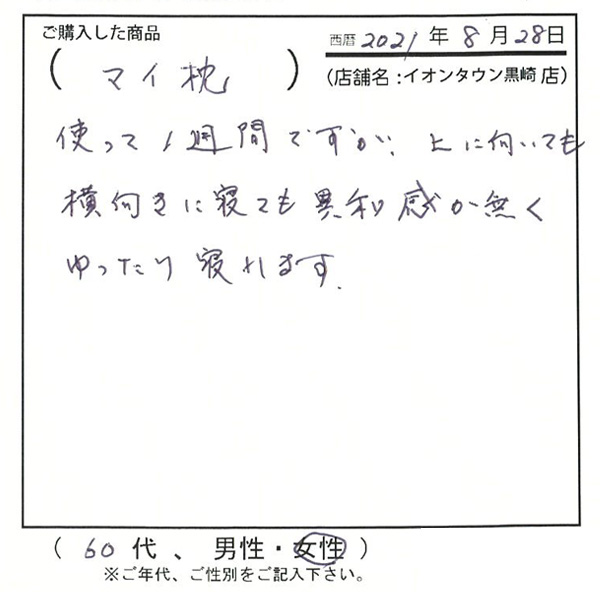 ご購入した商品
西暦 2021 年 8 月 28 日
( マイ枕 )
(店舗名:イオンタウン黒崎 店)
使って1週間ですが、上に向いても
横向きに寝ても異和感が無く
ゆったり寝れます.
( 60 代 、 男性・女性 )
※ご年代、ご性別をご記入下さい。